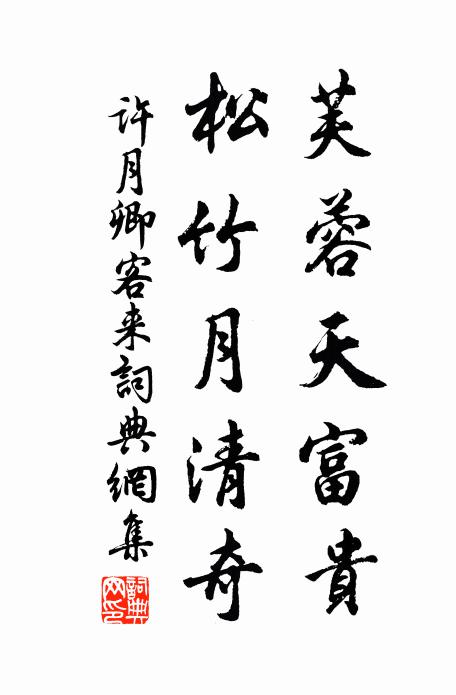 芙蓉天富貴
松竹月清奇
許月卿客来詞典網集
詞典網印